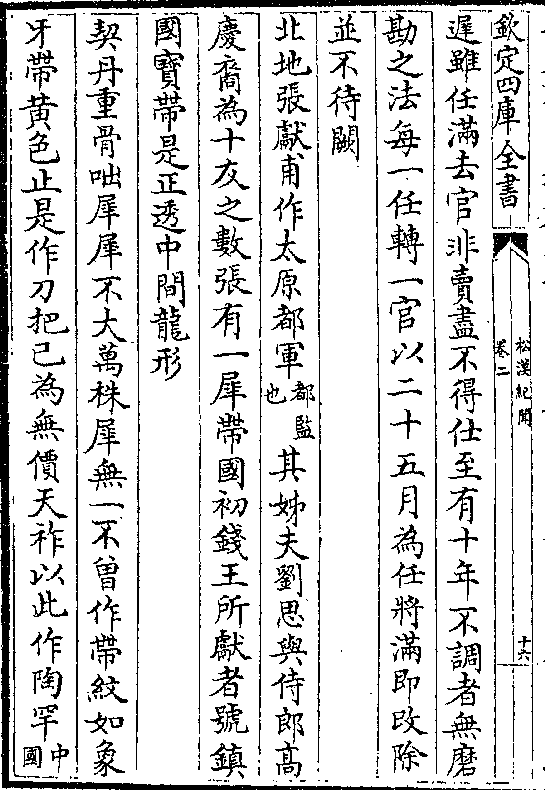 欽定四庫全書
松漠紀聞
卷二
十六
遲雖任滿去官非賣盡不得仕至有十年不調者無磨
勘之法每一任轉一官以二十五月為任將滿即改除
並不待闕
北地張獻甫作太原都軍都監也其姊夫劉思與侍郎高
慶裔為十友之數張有一犀帶國初錢王所獻者號鎮
國寶帶是正透中間龍形
契丹重骨咄犀犀不大萬株犀無一不曽作帶紋如象
牙帶黃色止是作刀把已為無價天祚以此作陶罕中國